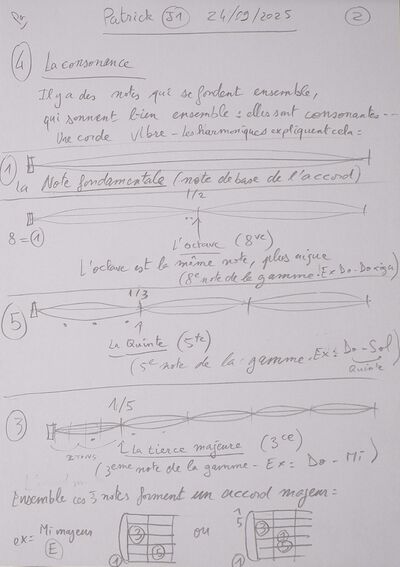 Patrick J1 24/09/2025 2
4 La consonence
Il y a des notes qui se fondent ensemble,
qui sonnent bien ensemble : elles sont consonantes...
Une corde vibre - les harmoniques expliquent cela =
1
La Note fondamentale (note de base de l'accord)
1/2
8 = 1
L'octave (8ve)
L'octave est la même note, plus aigue
(8e note de la gamme. Ex Do - Do
1/3
5
La Quinte (5te)
(5e note de la gamme. Ex = Do - Sol)
Quinte
1/5
3
2 tons
La tierce majeure (3ce)
(3eme note de la gamme - Ex = Do - Mi)
Ensemble ces 3 notes forment un accord majeur =
ex = Mi majeur
E
3
5
1
ou
1
5
3
5
1